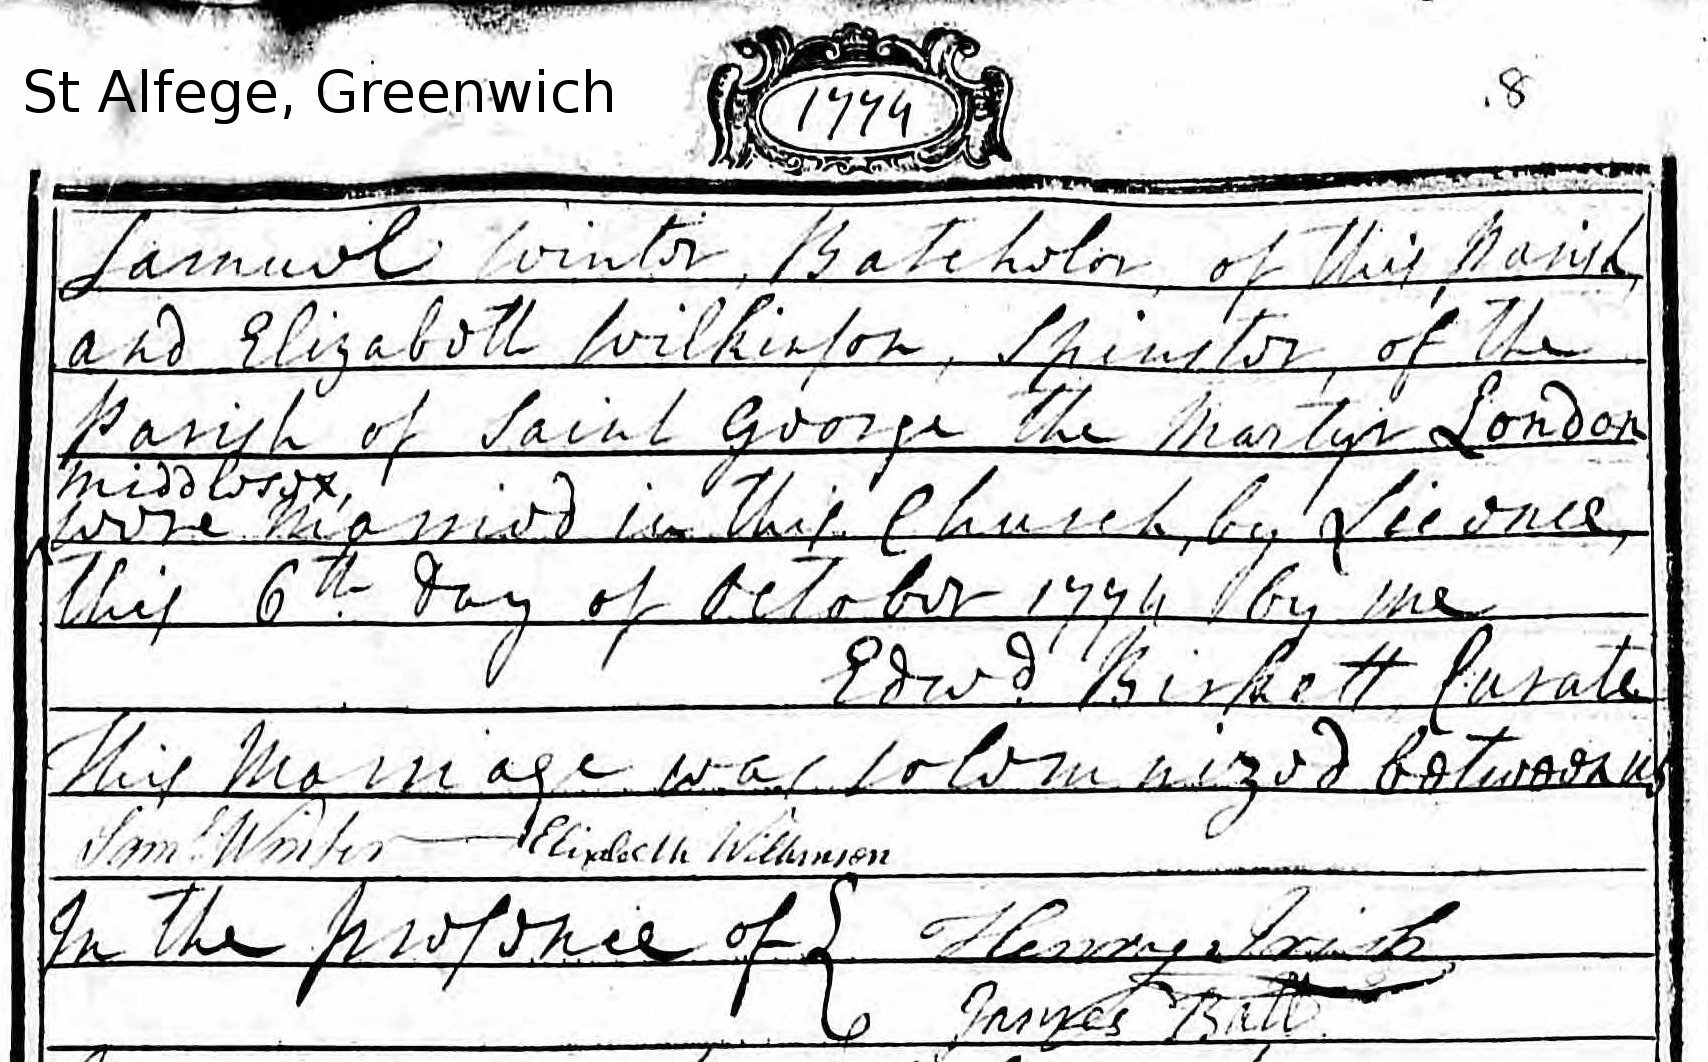 St Alfege, Greenwich
1774
.8
Samuel Winter, Batchelor, of this Parish,
and Elizabeth Wilkinson, Spinster, of the
Parish of Saint George the Martyr London
Middlesex,
were Married in this Church, by Licence,
this 6th Day of October 1774 by me
Edwd Birkett Curate
This Marriage was solemnized between us
Saml Winter Elizabeth Wilkinson
In the presence of { Henry Irish
James Ball